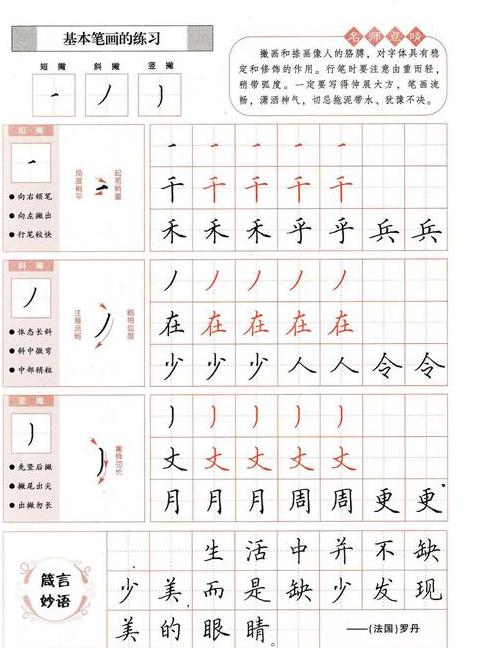 基本笔画的练习
短撇 斜撇 竖撇
名师点睛
撇画和捺画像人的胳膊,对字体具有稳
定和修饰的作用。行笔时要注意由重而轻,
稍带弧度。一定要写得伸展大方,笔画流
畅,潇洒神气,切忌拖泥带水、犹豫不决。
短撇
●向右顿笔
●向左撇出
●行笔较快
起笔稍重
角度稍平
千千千千千
禾禾禾乎乎兵兵
斜撇
●体态长斜
●斜中微弯
●中部稍粗
略带弧度
注意流畅
在在在在在
少少少人人令令
竖撇
●先竖后撇
●撇尾出尖
●出撇勿长
撇锋勿长
丈丈丈丈丈
月月月周周更更
箴言
妙语
生活中并不缺
少美,而是缺少发现
美的眼睛。
——(法国)罗丹